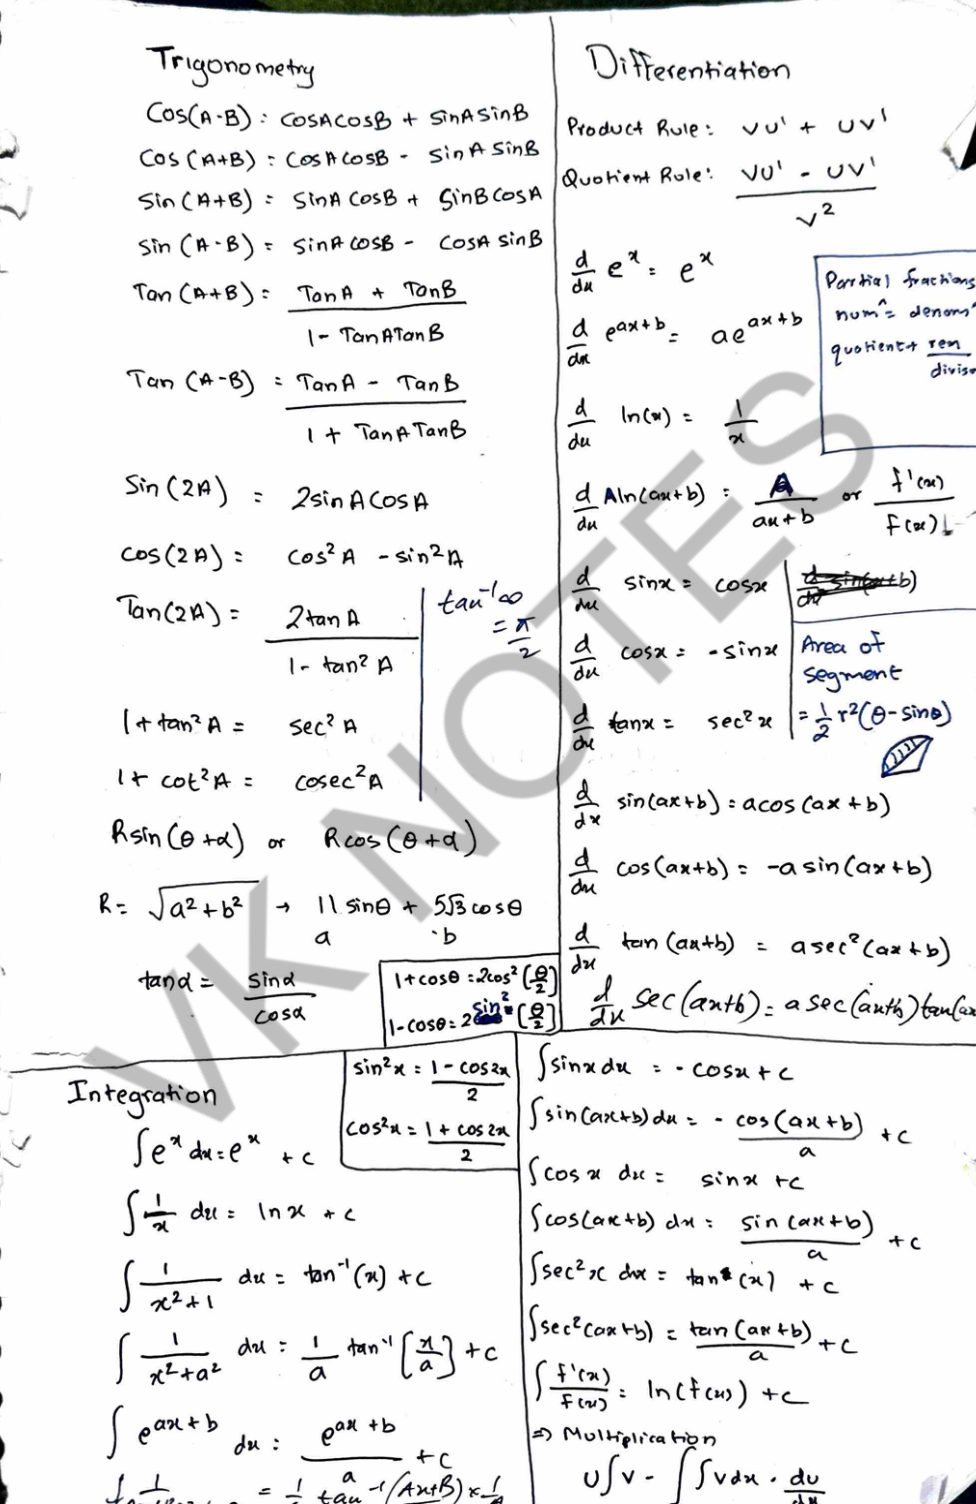 Trigonometry
Cos(A-B) : cosAcosB + sinAsinB
Cos (A+B) : cosAcosB - sinA sinB
Sin (A+B) = sinA cosB + SinB cosA
Sin (A-B) = sinA cosB - cosA sinB
Tan (A+B) = TanA + TanB
1 - TanATanB
Tan (A-B) = TanA - TanB
1 + TanATanB
Sin (2A) = 2sinAcosA
cos(2A) = cos²A - sin²A
Tan(2A) = 2tanA
1 - tan²A
tan⁻¹∞
= π/2
1 + tan²A = sec²A
1 + cot²A = cosec²A
Rsin(θ+α) or Rcos(θ+α)
R = √a²+b² → 11 sinθ + 5√3 cosθ
a b
tanα = sinα
cosα
1+cosθ = 2cos² [θ/2]
1-cosθ = 2 sin² [θ/2]
Differentiation
Product Rule : vu' + uv'
Quotient Rule : vu' - uv'
v²
d/dx eˣ = eˣ
d/dx eᵃˣ⁺ᵇ = aeᵃˣ⁺ᵇ
Partial fractions
quotient + rem
d/dx ln(x) = 1/x
d/dx Aln(ax+b) = A/ax+b or f'(x)/f(x)
d/dx sinx = cosx
d/dx cosx = -sinx
d/dx tanx = sec²x
Area of
segment
= 1/2 r²(θ-sinθ)
d/dx sin(ax+b) = acos(ax+b)
d/dx cos(ax+b) = -a sin(ax+b)
d/dx tan(ax+b) = asec²(ax+b)
d/dx sec(ax+b) = a sec(ax+b) tan(ax
Integration
∫eˣ dx = eˣ + c
∫1/x dx = lnx + c
∫ 1/x²+1 dx = tan⁻¹(x) + c
∫ 1/x²+a² dx = 1/a tan⁻¹ [x/a] + c
∫ eᵃˣ⁺ᵇ dx = eᵃˣ⁺ᵇ/a + c
sin²x = 1 - cos2x
2
cos²x = 1 + cos2x
2
∫sinx dx = -cosx + c
∫sin(ax+b) dx = - cos(ax+b)/a + c
∫cosx dx = sinx + c
∫cos(ax+b) dx = sin(ax+b)/a + c
∫sec²x dx = tan(x) + c
∫sec²(ax+b) = tan(ax+b)/a + c
∫ f'(x)/f(x) = ln(f(x)) + c
⇒ Multiplication
u∫v - ∫∫vdx · du/dx
VK NOTES